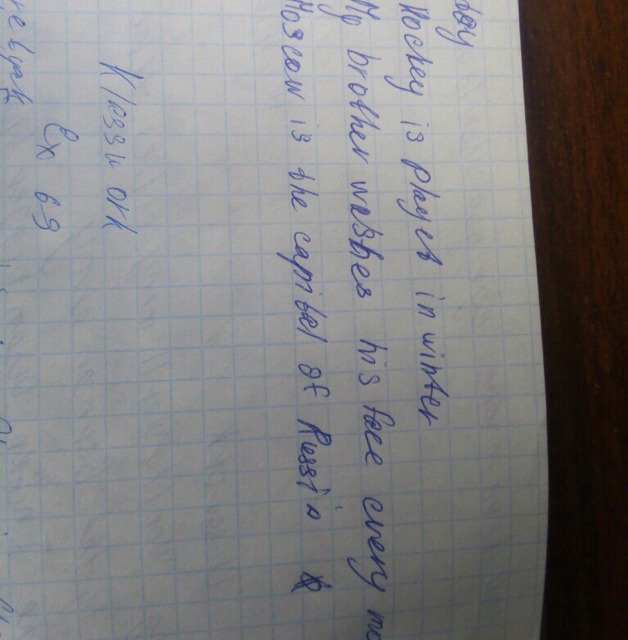 day
Hockey is played in winter
My brother washes his face every
Moscow is the capital of Russia
Klasswork
Ex 69